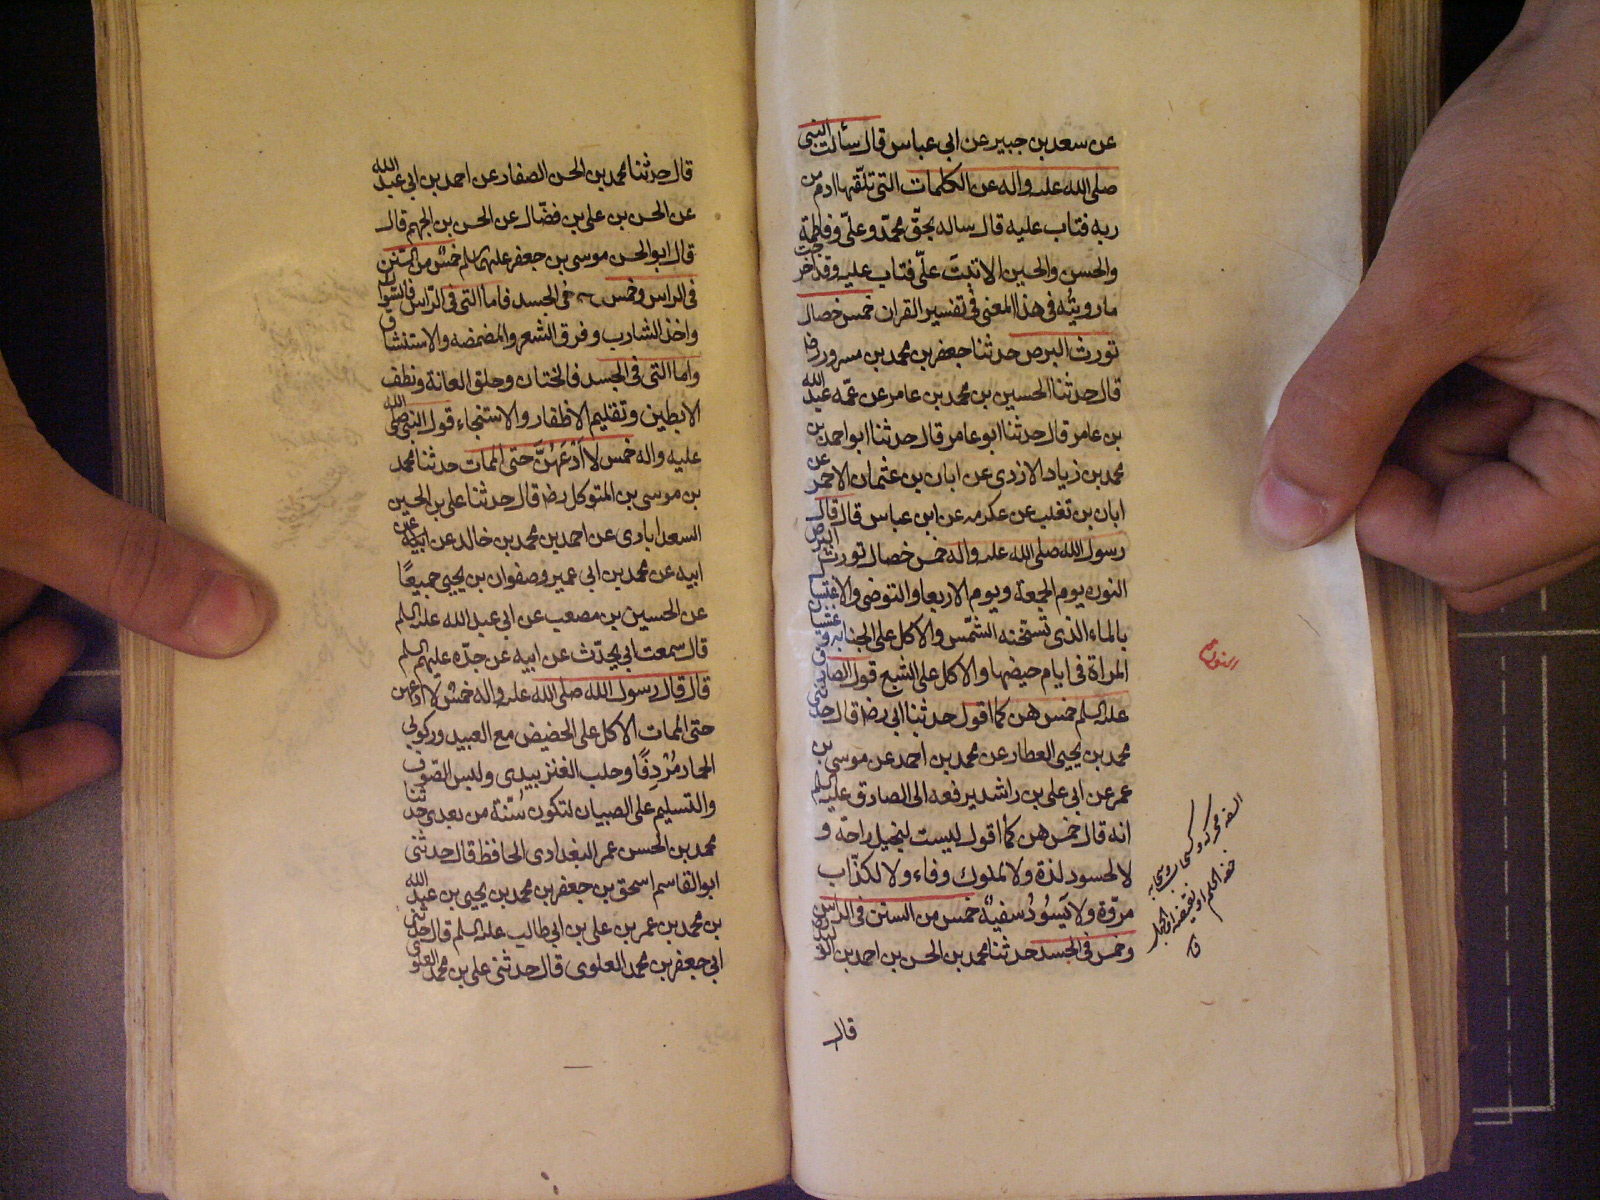 عن سعد بن جبير عن ابى عباس قال سئالت النبى
صلى الله عليه واله عن الكلمات التى تلقّيها ادم من
ربه فتاب عليه قال ساله بحقّ محمّد وعلىّ وفاطمة
والحسن والحسين الا تبتَ علىّ فتاب عليه وقد اخرجت
ما رويتُه فى هذا المعنى فى تفسير القران خمس خصال
تورث البرص حدثنا جعفر بن محمد بن مسرور رضا
قال حدثنا الحسين بن محمد بن عامر عن عمّه عبد الله
بن عامر قال حدثنا ابو عامر قال حدثنا ابو احمد بن
محمد بن زياد الازدى عن ابان بن عثمان الاحمر عن
ابان بن تغلب عن عكرمه عن ابن عباس قال قال
رسول الله صلى الله عليه واله خمس خصال تورث البرص
النوره يوم الجمعة ويوم الاربعا والتوضى والاغتسال
بالماء الذى تسخنه الشمس والاكل على الجنابه وغشيان
المراة فى ايام حيضها والاكل على الشبع قول الصادق
عليه السلم خمس هن كما اقول حدثنا ابى رضا قال حدثنى
محمد بن يحيى العطار عن محمد بن احمد عن موسى بن
عمر عن ابى على بن راشد يرفعه الى الصادق عليه السلم
انه قال خمس هن كما اقول ليست لبخيل راحة و
لا لحسود لذة ولا لملوك وفاء ولا لكذّاب
مروّة ولا يَسوُدُ سفيهٌ خمس من السنن فى الراس
وخمس فى الجسد حدثنا محمد بن الحسن بن احمد بن الوليد
قال
قال حدثنا محمد بن الحسن الصفار عن احمد بن ابى عبد الله
عن الحسن بن على بن فضّال عن الحسن بن الجهم قال
قال ابو الحسن موسى بن جعفر عليهما السلم خمسٌ من السنن
فى الراس وخمس فى الجسد فاما التى فى الرّاس فالسّواك
واخذ الشارب وفرق الشعر والمضمضه والاستنشاق
واما التى فى الجسد فالختان وحلق العانة ونطف
الابطين وتقليم الاظفار والاستنجاء قول النبى صلى الله
عليه واله خمس لا اَدَعُهُنَّ حتى الممات حدثنا محمد
بن موسى بن المتوكل رضا قال حدثنا على بن الحسين
السعدابادى عن احمد بن محمد بن خالد عن ابيه عن
ابيه عن محمد بن ابى عمير وصفوان بن يحيى جميعًا
عن الحسين بن مصعب عن ابى عبد الله عليه السلم
قال سمعت ابى يحدّث عن ابيه عن جدّه عليهم السلم
قال قال رسول الله صلى الله عليه واله خمسٌ لا ادعهن
حتى الممات الاكل على الحضيض مع العبيد وركوبى
الحمار مُرْدِفًا وحلب العنز بيدى ولبس الصّوف
والتسليم على الصبيان لتكون سُنّة من بعدى حدثنا
محمد بن الحسن عمر البغدادى الحافظ قال حدثنى
ابو القاسم اسحق بن جعفر بن محمد بن يحيى بن عبد الله
بن محمد بن عمر بن على بن ابى طالب عليه السلم قال حدثنى
ابى جعفر بن محمد العلوى قال حدثنى على بن محمد العلوى